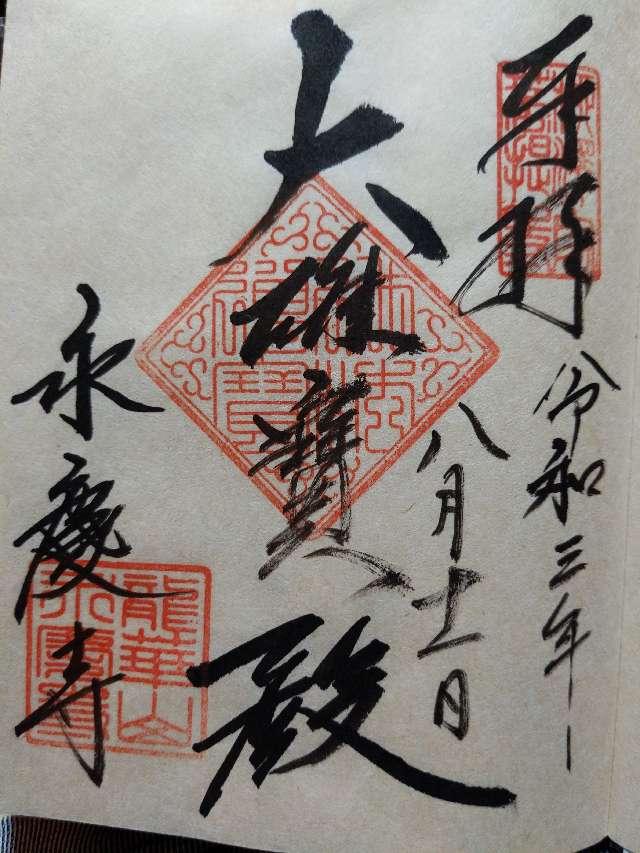 奉拝
令和三年
八月十一日
大雄寳殿
永慶寺
龍華山
永慶寺